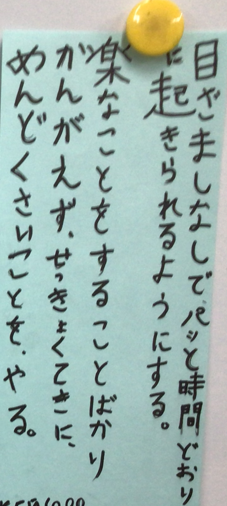 目ざましなしで、パッと時間どおり
に起きられるようにする。
楽なことをすることばかり
かんがえず、せっきょくてきに、
めんどくさいことを、やる。